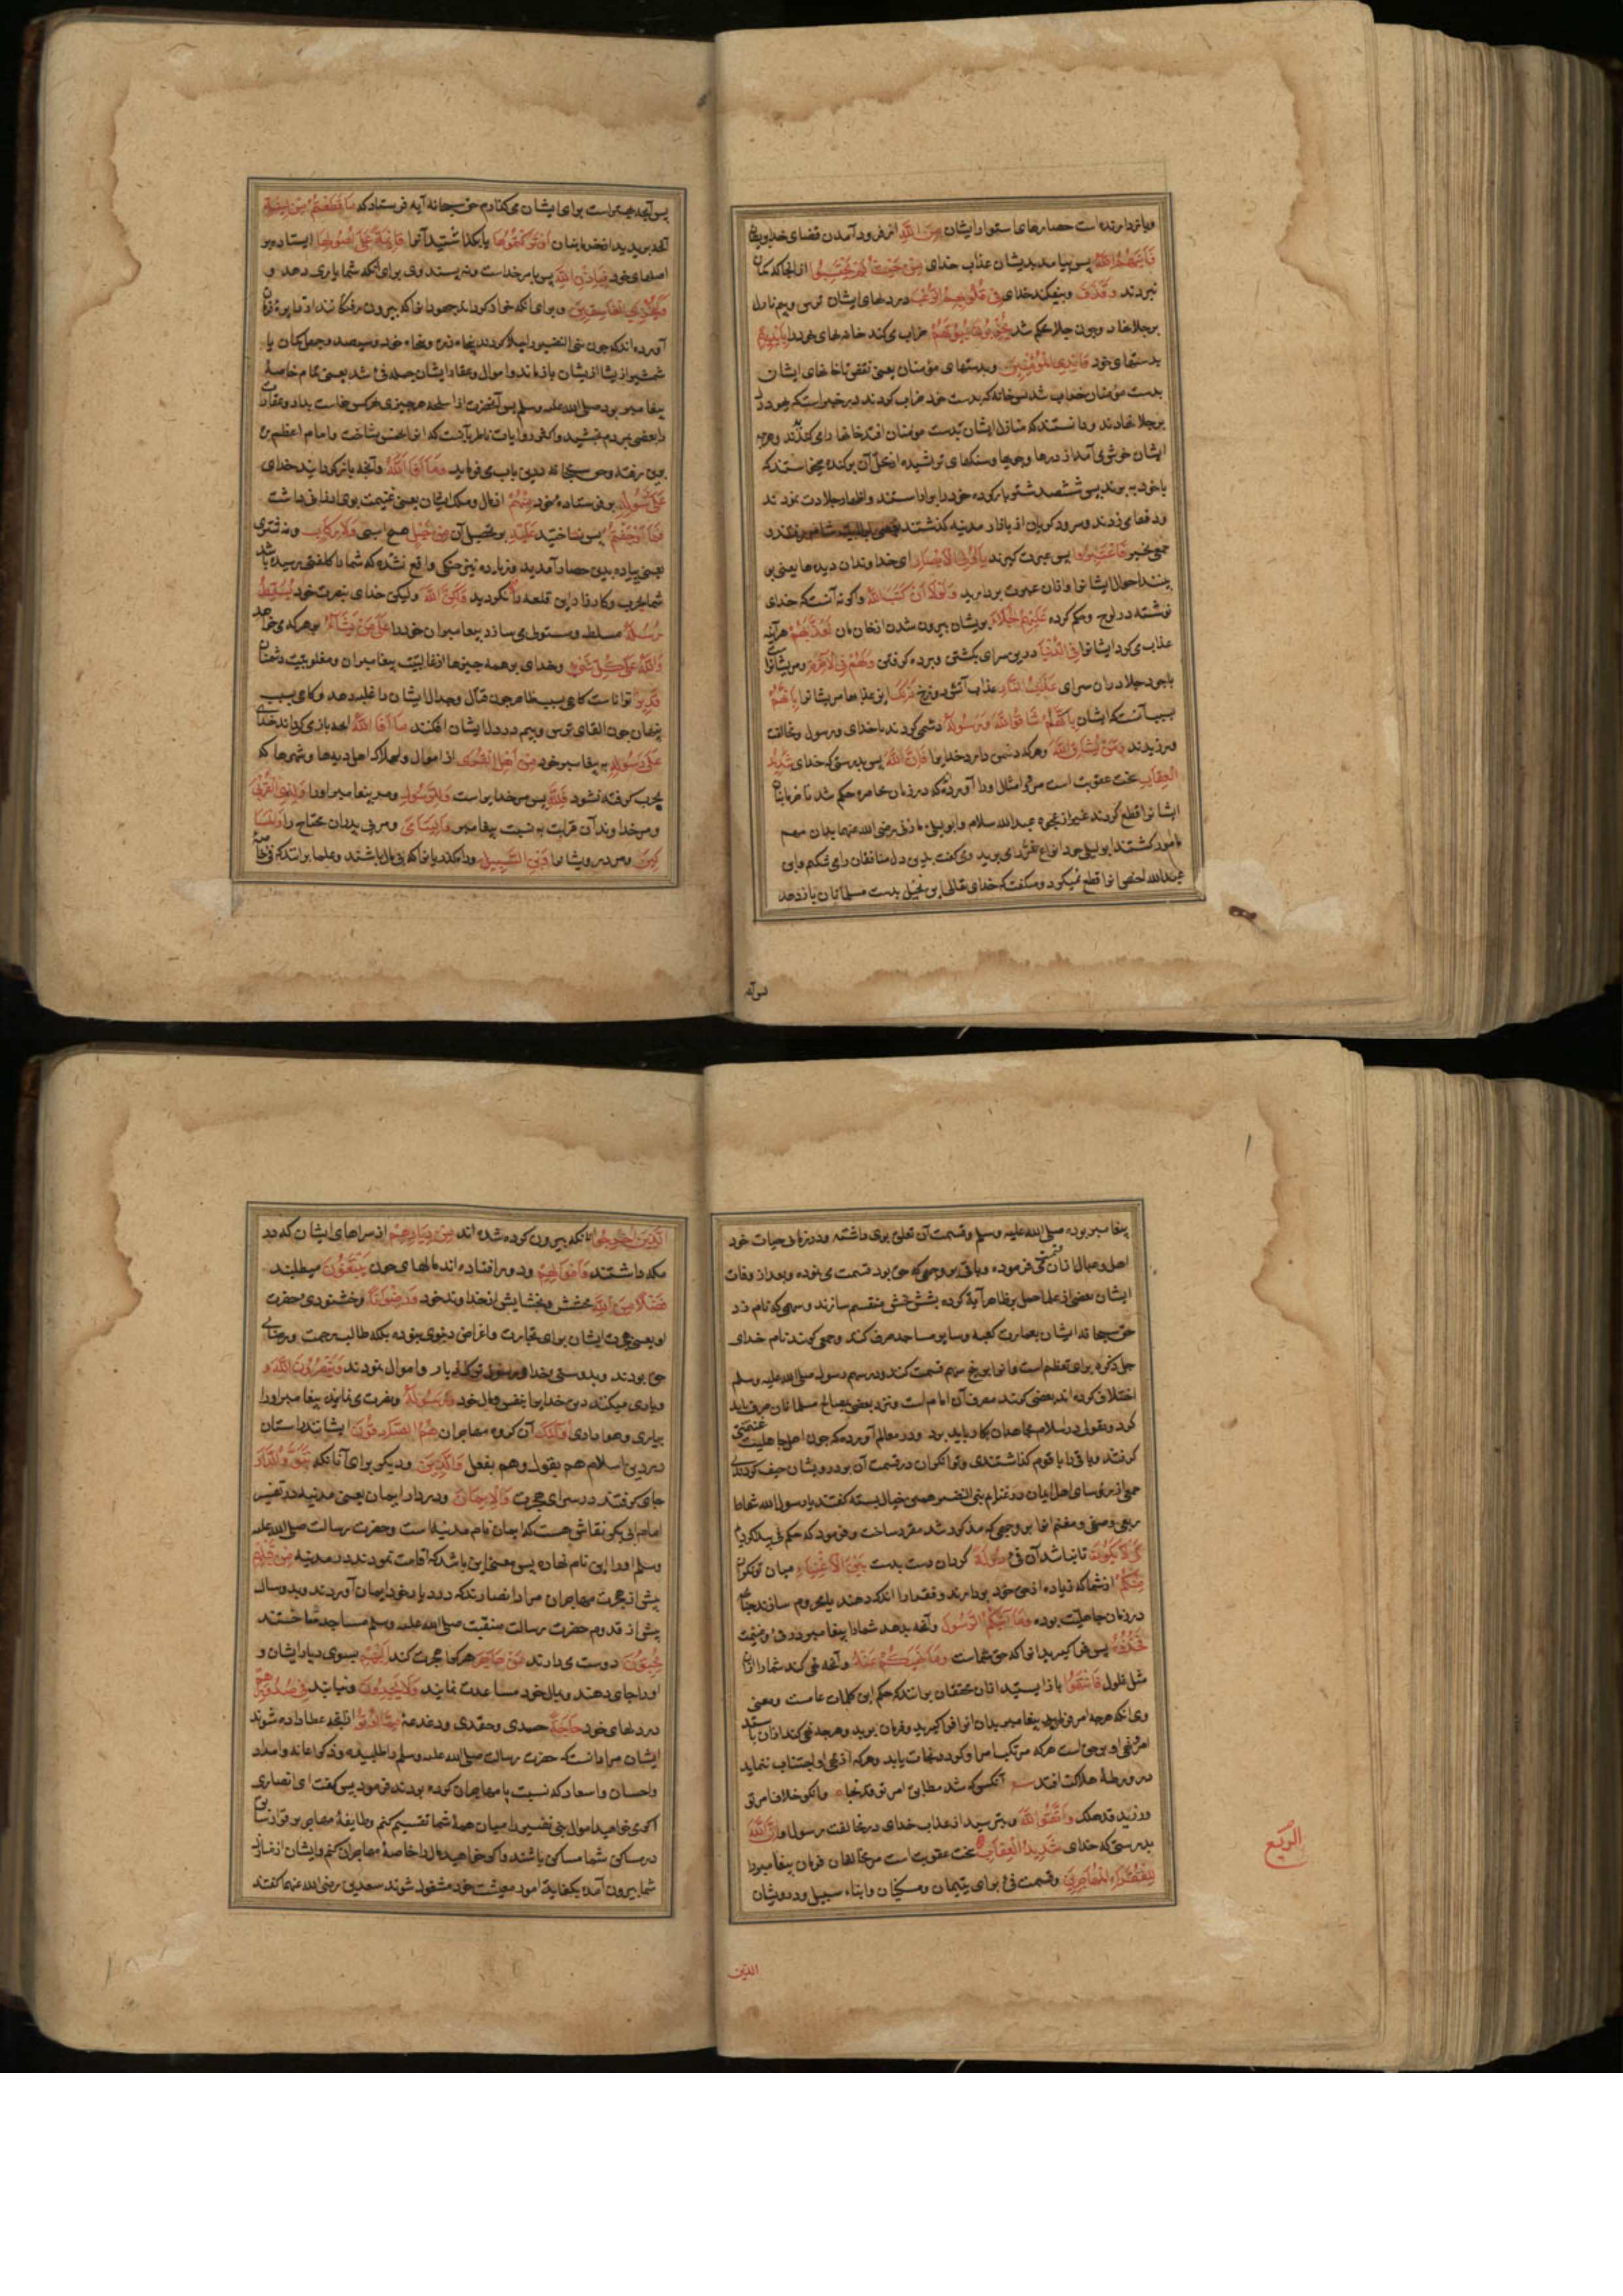 وبازدارنده است حصارهای استوار ایشان مِنَ اللَّهِ از فرود آمدن قضای خدا بریشان
فَأَتَاهُمُ اللَّهُ پس بیامد بدیشان عذاب خدای مِنْ حَيْثُ لَمْ يَحْتَسِبُوا از انجا که کمان
نبردند وَقَذَفَ وبیفکند خدای فِي قُلُوبِهِمُ الرُّعْبَ در دلهای ایشان ترس وبیم تا دل
بر جلا نهادند وچون جلا محکم شد يُخْرِبُونَ بُيُوتَهُمْ خراب می کنند خانهای خود را بِأَيْدِيهِمْ
بدستهای خود وَأَيْدِي الْمُؤْمِنِينَ وبدستهای مؤمنان یعنی نقض تا خانهای ایشان
بدست مؤمنان خراب شد
بر جلا نهادند ودانستند که منازل ایشان بدست مومنان افتد خانها را می کندند وهرچه
ایشان خوش می آمد از درها وچوبها وسنکهای تراشیده از محل آن برکنده میخواستند که
با خود ببرند پس ششصد شتر بار کرده خود را بیاراستند واظهار جلادت نمودند
ودفها می زدند وسرود کویان از بازار مدینه کذشتند
جمعی بخیبر فَاعْتَبِرُوا پس عبرت کیرید يَا أُولِي الْأَبْصَارِ ای خداوندان دیدها یعنی بر
بینند احوال ایشانرا وازان عبرت بردارید وَلَوْلَا أَنْ كَتَبَ اللَّهُ واکر نه آنست که خدای
نوشته در لوح وحکم کرده عَلَيْهِمُ الْجَلَاءَ بریشان بیرون شدن از خان ومان لَعَذَّبَهُمْ هرآینه
عذاب می کرد ایشانرا فِي الدُّنْيَا درین سرای بکشتن وبرده کرفتن وَلَهُمْ فِي الْآخِرَةِ ومریشانرا
با وجود جلا در ان سرای عَذَابُ النَّارِ عذاب آتش دوزخ ذَلِكَ این عذابها مریشانرا بِأَنَّهُمْ
بسبب آنست که ایشان شَاقُّوا اللَّهَ وَرَسُولَهُ دشمنی کردند با خدای ورسول ومخالفت
ورزیدند وَمَنْ يُشَاقِّ اللَّهَ وهر که دشمنی دارد خدایرا فَإِنَّ اللَّهَ پس بدرستی که خدای شَدِيدُ
الْعِقَابِ سخت عقوبت است مر او امثال اورا آورده اند که در زمان محاصره حکم شد تا خرمابنان
ایشانرا قطع کردند غیر از عجوه عبدالله سلام وابو لیلی مازنی رضی الله عنهما بدان مهم
مامور کشتند ابو لیلی خود انواع تمر را می برید ومی کفت بدین دل منافقان را می شکنم وابن
عبدالله لختی انرا قطع نمیکرد ومیکفت که خدای تعالی این نخیل بدست مسلمانان باز دهد
پس آنچه
پس آنچه بهتر است برای ایشان می کذارم حق سبحانه آیه فرستاد که مَا قَطَعْتُمْ مِنْ لِينَةٍ
آنچه بریدید از خرمابنان أَوْ تَرَكْتُمُوهَا یا بکذاشتید آنرا قَائِمَةً عَلَى أُصُولِهَا ایستاده بر
اصلهای خود فَبِإِذْنِ اللَّهِ پس بامر خداست وبرای آنکه شما یاری دهد و
وَلِيُخْزِيَ الْفَاسِقِينَ وبرای آنکه خوار کرداند جهودانرا که بیرون رفتکانند
آورده اند که چون بنی النضیر را جلا کردند پنجاه زره وپنجاه خود وسیصد وچهل کمان یا
شمشیر ازیشان باز ماند واموال وعقار ایشان جمله فی شد یعنی تمام خاصهٔ
پیغامبر بود صلی الله علیه وسلم پس آنحضرت از اسلحه هر چیزی هر کس خواست بداد وعقارات
را بعضی بمردم بخشید واکثر روایات ناظر بآنست که انرا بخمس نساخت وامام اعظم برین
برین رفته وحق سبحانه درین باب می فرماید وَمَا أَفَاءَ اللَّهُ وآنچه باز کردانید خدای
عَلَى رَسُولِهِ بر فرستاده خود مِنْهُمْ از مال وملک ایشان یعنی غنیمت
فَمَا أَوْجَفْتُمْ پس نتاختید عَلَيْهِ بر تحصیل آن مِنْ خَيْلٍ هیچ اسبی وَلَا رِكَابٍ ونه شتری
یعنی پیاده بدین حصار آمدید وزیاده نیز جنکی واقع نشده که شما را کلفتی رسیده باشد
شما بحرب وکارزار این قلعه را نکردید وَلَكِنَّ اللَّهَ ولیکن خدای بنصرت خود يُسَلِّطُ
رُسُلَهُ مسلط ومستولی می سازد پیغامبران خود را عَلَى مَنْ يَشَاءُ بر هر که می خواهد
وَاللَّهُ عَلَى كُلِّ شَيْءٍ وخدای بر همه چیزها از غالبیت پیغامبران ومغلوبیت دشمنان
قَدِيرٌ تواناست کاهی بسبب ظاهر چون قتال وجدال ایشانرا غلبه دهد وکاهی بسبب
پنهان چون القای ترس وبیم در دل ایشان افکند مَا أَفَاءَ اللَّهُ آنچه باز می کرداند خدای
عَلَى رَسُولِهِ بر پیغامبر خود مِنْ أَهْلِ الْقُرَى از اموال واملاک اهل دیها وشهرها که
بحرب کرفته نشود فَلِلَّهِ پس مر خدایراست وَلِلرَّسُولِ ومر پیغامبر اورا وَلِذِي الْقُرْبَى
ومر خداوندان قرابت به نسبت پیغامبر وَالْيَتَامَى ومر بی پدران محتاج را وَالْمَسَا
كِينِ ومر درویشانرا وَابْنِ السَّبِيلِ وراهکذریانرا که بی مال باشند وعلما برانند که فی خاصهٔ
پیغامبر بوده صلی الله علیه وسلم وقسمت آن تعلق بوی داشته ودر زمان حیات خود
اهل وعیال ازان نفقه می فرموده وباقی بر وجهی که حق بود قسمت می نموده وبعد از وفات
ایشان بعضی از علما عمل بر ظاهر آیة کرده بشش بخش منقسم سازند وسهمی که نام زد
حق سبحانه ایشان بعمارت کعبه وسایر مساجد صرف کنند وجمعی کویند نام خدای
جل ذکره برای تعظیم است وانرا بر پنج سهم قسمت کنند ودر سهم رسول صلی الله علیه وسلم
اختلاف کرده اند بعضی کویند مصرف آن امام است ونزد بعضی بمصالح مسلمانان صرف باید
کرد وبقولی در سلاح مجاهدان بکار باید برد ودر معالم آورده که چون اهل جاهلیت غنیمتی
کرفتند وباقی را با قوم کذاشتندی وتوانکران در قسمت آن بر درویشان حیف کردندی
جمعی از رؤسای اهل ایمان در غنایم بنی النضیر همین خیال بسته کفتند یا رسول الله شما را
ربعی وصفی ومغنم انرا بر وجهی که مذکور شد مقرر ساخت وفرمود که حکم فی پیدا کردیم
كَيْ لَا يَكُونَ تا نباشد آن فی دُولَةً کردان دست بدست بَيْنَ الْأَغْنِيَاءِ میان توانکران
مِنْكُمْ از شما که زیاده از حق خود بردارند وفقرا را اندک دهند یا محروم سازند چنانچه
در زمان جاهلیت بوده وَمَا آتَاكُمُ الرَّسُولُ وآنچه بدهد شما را پیغامبر از فی وغنیمت
فَخُذُوهُ پس فرا کیرید انرا که حق شماست وَمَا نَهَاكُمْ عَنْهُ وآنچه نهی کند شما را ازان
مثل غلول فَانْتَهُوا باز ایستید ازان محققان برانند که حکم این کلمات عامست ومعنی
وی آنکه هرچه امر فرماید پیغامبر بدان انرا فرا کیرید وفرمان برید وهرچه نهی کند ازان باز ایستید
امر ونهی او بوحی است هر که مرتکب امر او کردد نجات یابد وهر که از نهی او اجتناب ننماید
در ورطهٔ هلاکت افتد آنکس که شد مطابق امر تو قد نجا وآنکو خلاف امر تو
ورزید قد هلک وَاتَّقُوا اللَّهَ وبترسید از عذاب خدای در مخالفت رسول او إِنَّ اللَّهَ
بدرستی که خدای شَدِيدُ الْعِقَابِ سخت عقوبت است مر مخالفان فرمان پیغامبر را
لِلْفُقَرَاءِ الْمُهَاجِرِينَ وقسمت فی برای یتیمان ومسکینان وابناء سبیل ودرویشان
الربع
الذین
الَّذِينَ أُخْرِجُوا آنانکه بیرون کرده شده اند مِنْ دِيَارِهِمْ از سراهای ایشان که در
مکه داشتند وَأَمْوَالِهِمْ ودور افتاده اند از مالهای خود يَبْتَغُونَ میطلبند
فَضْلًا مِنَ اللَّهِ بخشش وبخشایشی از خداوند خود وَرِضْوَانًا وخشنودی حضرت
او یعنی هجرت ایشان برای تجارت واغراض دنیوی نبوده بلکه طالب رحمت ورضای
حق بودند وبدوستی خدا ورسول ترک دیار واموال نمودند وَيَنْصُرُونَ اللَّهَ وَ
ویاری میکنند دین خدایرا بنفس ومال خود وَرَسُولَهُ ونصرت می نمایند پیغامبر اورا
بیاری وهواداری أُولَئِكَ آن کروه مهاجران هُمُ الصَّادِقُونَ ایشانند راستان
در دین اسلام هم بقول وهم بفعل وَالَّذِينَ ودیکر برای آنانکه تَبَوَّءُوا الدَّارَ
جای کرفتند در سرای هجرت وَالْإِيمَانَ ودر دار ایمان یعنی مدینه در تفسیر
امام ابی بکر نقاش هست که ایمان نام مدینه است وحضرت رسالت صلی الله علیه
وسلم اورا این نام نهاده پس معنی این باشد که اقامت نمودند در مدینه مِنْ قَبْلِهِمْ
پیش از هجرت مهاجران مراد انصارند که در دیار خود ایمان آوردند وبدو سال
پیش از قدوم حضرت رسالت منقبت صلی الله علیه وسلم مساجد ساختند
يُحِبُّونَ دوست می دارند مَنْ هَاجَرَ هر کرا هجرت کند إِلَيْهِمْ بسوی دیار ایشان و
اورا جای دهند وبمال خود مساعدت نمایند وَلَا يَجِدُونَ ونیابند فِي صُدُورِهِمْ
در دلهای خود حَاجَةً حسدی وحقدی ودغدغهٔ مِمَّا أُوتُوا ازانچه عطا داده شوند
ایشان مراد آنست که حضرت رسالت صلی الله علیه وسلم را طلبیده وذکر اعانه وامداد
واحسان واسعاد که نسبت با مهاجران کرده بودند فرمود پس کفت ای انصاری
اکر می خواهید اموال بنی نضیر را میان همهٔ شما تقسیم کنم وطایفهٔ مهاجر بر قرار سابق
در مساکن شما ساکن باشند واکر خواهید مال را خاصهٔ مهاجران کنم وایشان از منازل
شما بیرون آمده بکفایة امور معیشت خود مشغول شوند سعدین رضی الله عنهما کفتند